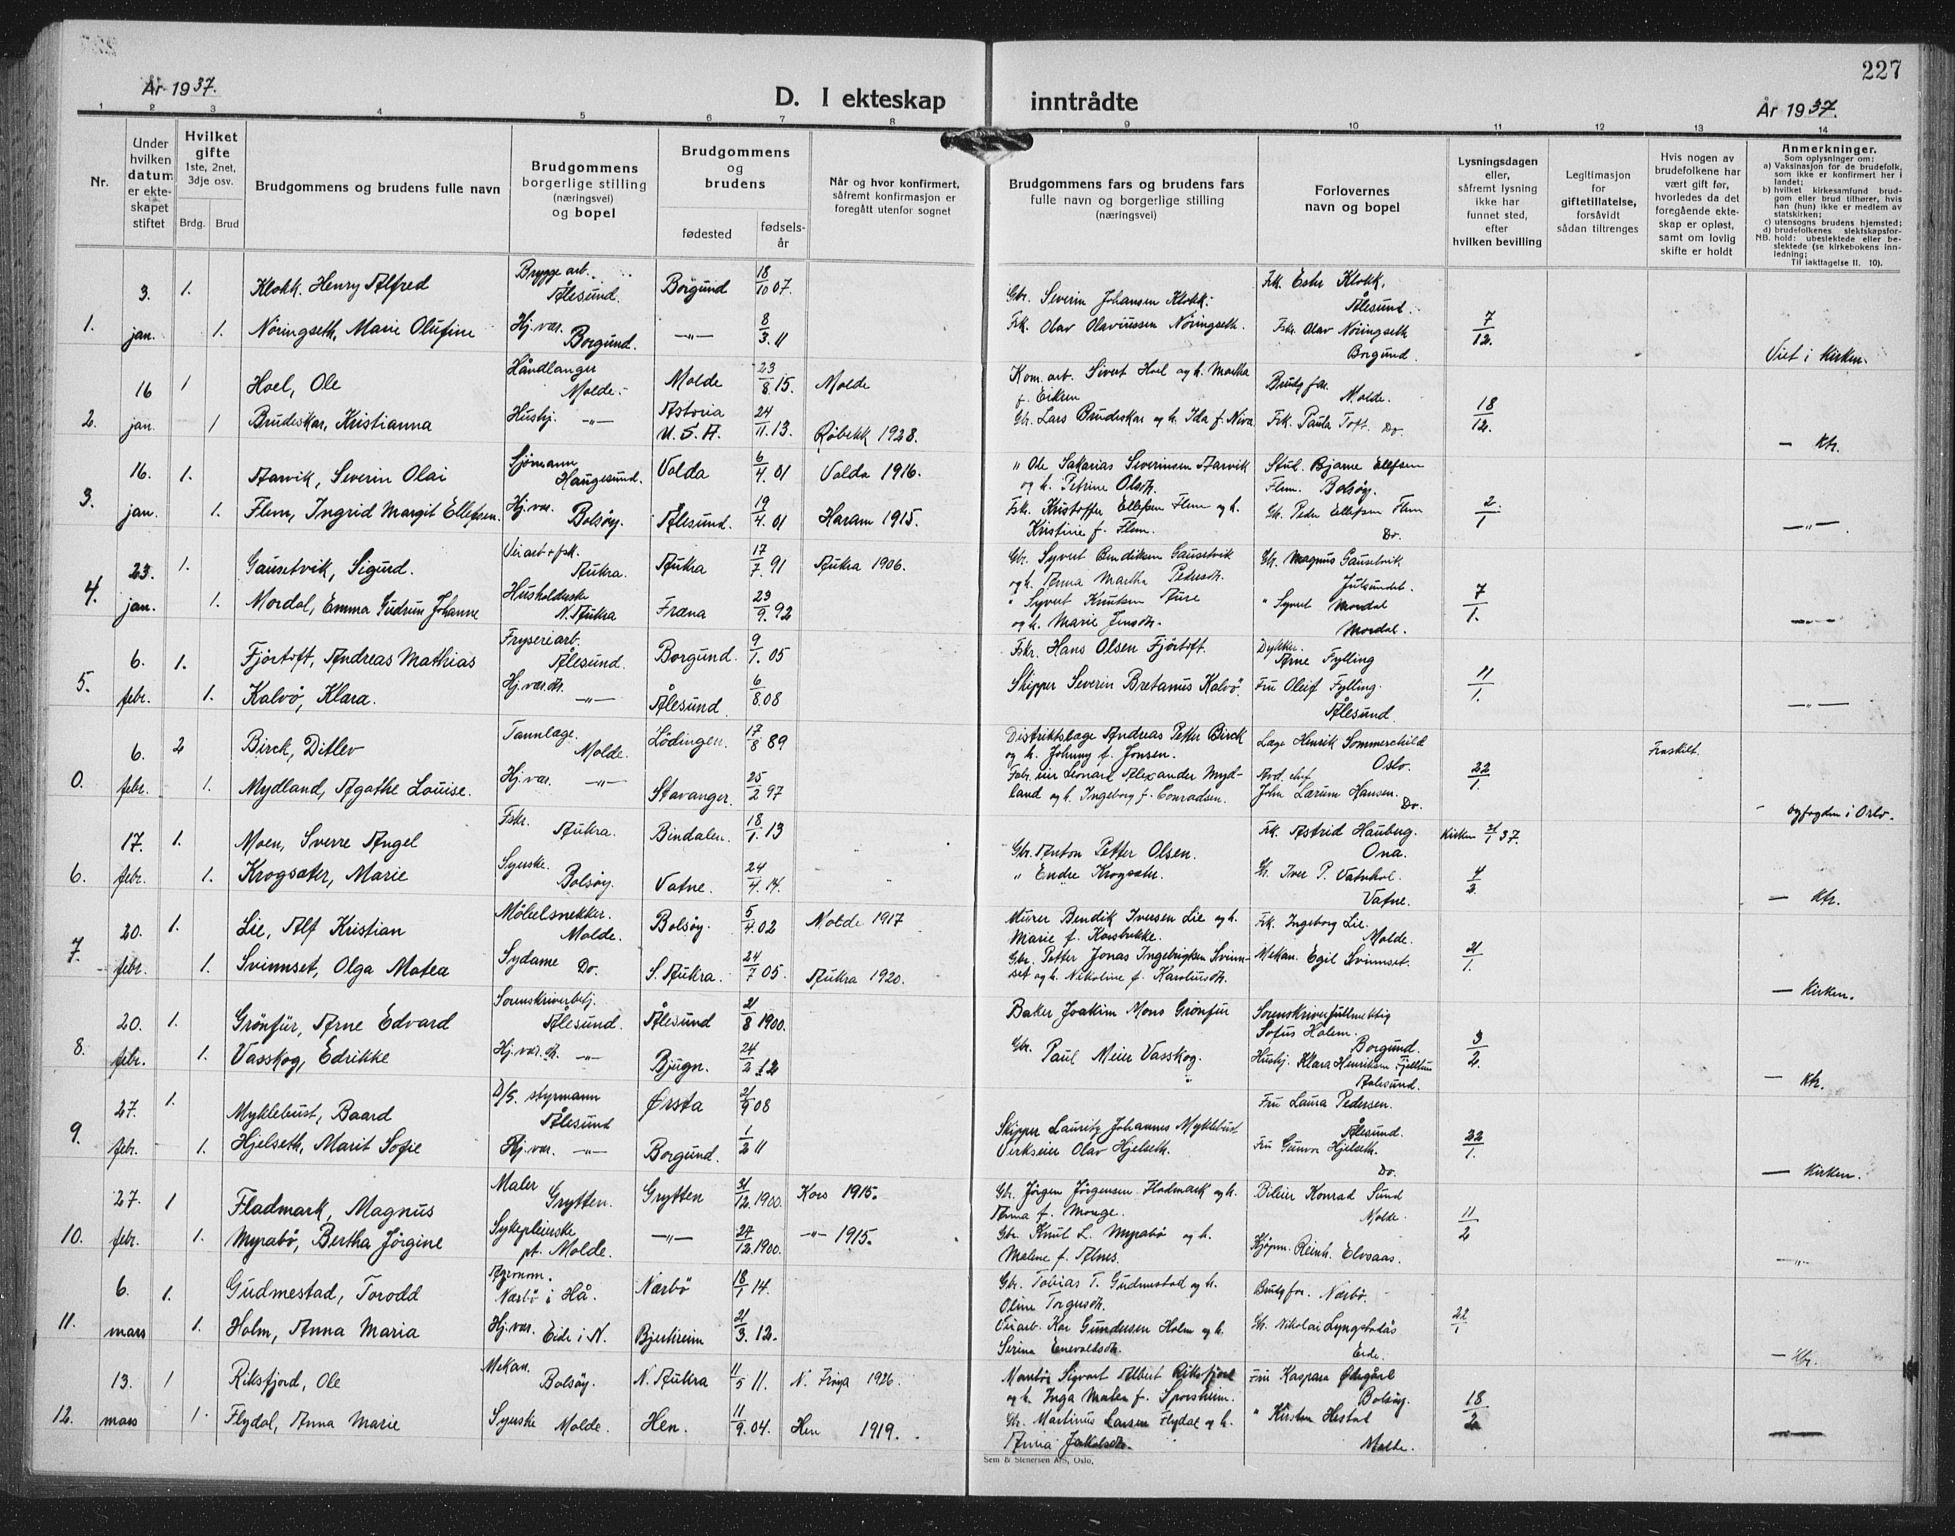 227
År 1937.
D. I ekteskap inntrådte
År 1937.
1 2 3 4 5 6 7 8 9 10 11 12 13 14
Nr.
Under hvilken datum er ekteskapet stiftet
Hvilket gifte
1ste, 2net, 3dje osv.
Brdg. Brud
Brudgommens og brudens fulle navn
Brudgommens borgerlige stilling (næringsvei) og bopel
Brudgommens og brudens
fødested
fødselsår
Når og hvor konfirmert, såfremt konfirmasjon er foregått utenfor sognet
Brudgommens fars og brudens fars fulle navn og borgerlige stilling (næringsvei)
Forlovernes navn og bopel
Lysningsdagen eller, såfremt lysning ikke har funnet sted, efter hvilken bevilling
Legitimasjon for giftetillatelse, forsåvidt sådan tiltrenges
Hvis nogen av brudefolkene har vært gift før, hvorledes da det foregående ekteskap er opløst, samt om lovlig skifte er holdt
Anmerkninger.
Som oplysninger om:
a) Vaksinasjon for de brudefolk, som ikke er konfirmert her i landet;
b) hvilket kirkesamfund brudgom eller brud tilhører, hvis han (hun) ikke er medlem av statskirken;
c) utensogns brudens hjemsted;
d) brudefolkenes slektskapsforhold: ubeslektede eller beslektede (se kirkebokens innledning;
NB. Til iakttagelse II. 10).
1. 3. jan. 1. Klokk, Henry Alfred Bryggearb. Ålesund. Borgund 18/10 07. Gbr. Severin Johansen Klokk. Frk. Ester Klokk, Ålesund.
1. Nöringseth, Marie Olufine Hj. vær. Borgund. —"— 8/3 11 Fsk. Olav Olavuussen Nöringseth. Fskr. Olav Nöringseth Borgund. 7/12. Viet i kirken.
2. 16 jan. 1 Hoel, Ole Håndlanger Molde. Molde 23/8 15. Molde Kom. arb. Sivert Hoel og h. Martha f. Eiken Brudg. far. Molde.
1 Brudeskar, Kristianna Hushj. —"— Astoria U. S. A. 24/11. 13. Røbekk 1928. Gbr. Lars Brudeskar og h. Ida f. Neva Frk. Paula Toft. Do. 18/12. — Ktr.
3. 16. jan. 1. Aarvik, Severin Olai Sjømann Haugesund. Volda 6/4. 01 Volda 1916. " Ole Sakarias Severinsen Aarvik og h. Petrine Olsdtr. Stud. Bjarne Ellefsen Flem. Bolsøy.
1. Flem, Ingrid Margit Ellefsen. Hj. vær. Bolsøy. Ålesund. 19/4. 01 Haram 1915. Fsk. Kristoffer Ellefsen Flem og h. Kristine f. Flem. Gb. Peder Ellefsen Flem Do. 2/1 —"—
4. 23. jan. 1. Gausetvik, Sigurd. Veiarb. + fsk. Aukra. Aukra 17/7. 91 Aukra 1906. Gbr. Syvert Bendiksen Gausetvik og h. Anna Martha Pedersdtr. Gb. Magnus Gausetvik Julsundet.
1. Mordal, Emma Gudrun Johanne Husholderske N. Aukra Fræna 23/9. 92 " Syvert Knutsen Aure og h. Marie Jensdtr. " Syvert Mordal Mordal. 7/1. —"—
5. 6. febr. 1. Fjörtoft, Andreas Mathias Fryseriarb. Ålesund. Borgund. 9/1. 05 Fskr. Hans Olsen Fjörtoft. Dykker. Arne Fylling
1. Kalvö, Klara. Hj. vær. —"— Ålesund. 6/8. 08 Skipper Severin Bretanus Kalvö. Fru Oleif Fylling. Ålesund. 11/1. —"—
0. 6. febr. 2 Birck, Ditlev Tannlæge. Molde. Lödingen. 17/8 89 Distriktslæge Andreas Petter Birck og h. Johnny f. Jonsen. Læge Henrik Sommerschild Oslo. Fraskilt.
1. Mydland, Agathe Louise. Hj. vær. —"— Stavanger. 25/2 97 Fabr. eier Leonard Alexander Mydland og h. Ingeborg f. Conradsen. Avd. chef John Larum Hansen. Do. 22/1. - byfogden i Oslo.
6. 17. febr. 1. Moen, Sverre Angel Fskr. Aukra. Bindalen. 18/1. 13 Gbr. Anton Petter Olsen. Frk. Astrid Hauberg. Ona. Kirken 21/1 37.
1. Krogsæter, Marie Syerske. Bolsøy. Vatne. 24/4. 14. " Endre Krogsæter. Gb. Iver P. Vatnehol. Vatne. 4/2. — Ktr.
7. 20. febr. 1. Lie, Alf Kristian Möbelsnekker. Molde. Bolsøy. 5/4. 02 Molde 1917 Murer Bendik Iversen Lie og h. Marie f. Korsbrekke. Frk. Ingeborg Lie. Molde.
1. Svinnset, Olga Matea Sydame Do. S. Aukra. 24/7 05. Aukra 1920. Gbr. Petter Jonas Ingebrigtsen Svinnset og h. Nikoline f. Karolusdtr. Mekan. Egil Svinnset. 21/1. — Kirken.
8. 20. febr. 1. Grönfur, Arne Edvard Sorenskriverbetj. Ålesund. Ålesund 21/8 1900. Baker Joakim Mons Grönfur Sorenskriverfullmektig Sofus Holem. Borgund.
1. Vasskog, Edrikke Hj. vær. —"— Bjugn. 24/2 12 Gbr. Paul Meier Vasskog. Hushj. Klara Henriksen Fjelltun Aalesund. 3/2. — Ktr.
9. 27. febr. 1. Myklebust, Baard D/S. styrmann Ålesund Ørsta 2/9 08 Skipper Lauritz Johannes Myklebust Fru Laura Pedersen. Ålesund.
1. Hjelseth, Marit Sofie Hj. vær. —"— Borgund. 1/2 11 Verkseier Olav Hjelseth. Fru Gunvor Hjelseth. Do. 22/1. — Kirken.
10. 27. febr. 1 Fladmark, Magnus Maler Grytten. Grytten 31/12. 1900. Kors 1915. Gb. Jörgen Jörgensen Fladmark og h. Anna f. Monge. Bileier Konrad Sund Molde.
1. Myrabö, Bertha Jörgine Sykepleierske pt. Molde. —"— 27/12. 1900. —"— 1915. Gbr. Knut L. Myrabö og h. Malene f. Alnes. Kjøpm. Reinh. Elvsaas. 11/2 —"—
11. 6. mars 1. Gudmestad, Torodd Agronom. Nærbø i Hå. Nærbö 18/1 14. Gbr. Tobias T. Gudmestad og h. Oline Torgersdtr. Brudg. far. Nærbö.
1. Holm, Anna Maria Hj. vær. Eide i N. Bjerkreim 21/3. 12. Veiarb. Kar Gundersen Holm og h. Serina Enevaldsdtr. Gb. Nikolai Lyngstadås Eide. 22/1 — Ktr.
12. 13. mars 1 Riksfjord, Ole Mekan. Bolsøy. N. Aukra 11/5 11. N. Fröya 1926. Maskl. Sigvart Albert Riksfjord og h. Inga Malen f. Sporsheim. Fru Kaspara Ødegård Bolsøy.
1. Flydal, Anna Marie Syerske Molde. Hen. 11/9. 04. Hen 1919. Gb. Martinus Larsen Flydal og h. Anna Jakobsdtr. " Kirsten Hestad Molde. 18/2 —"—
Sem & Stenersen A/S, Oslo.